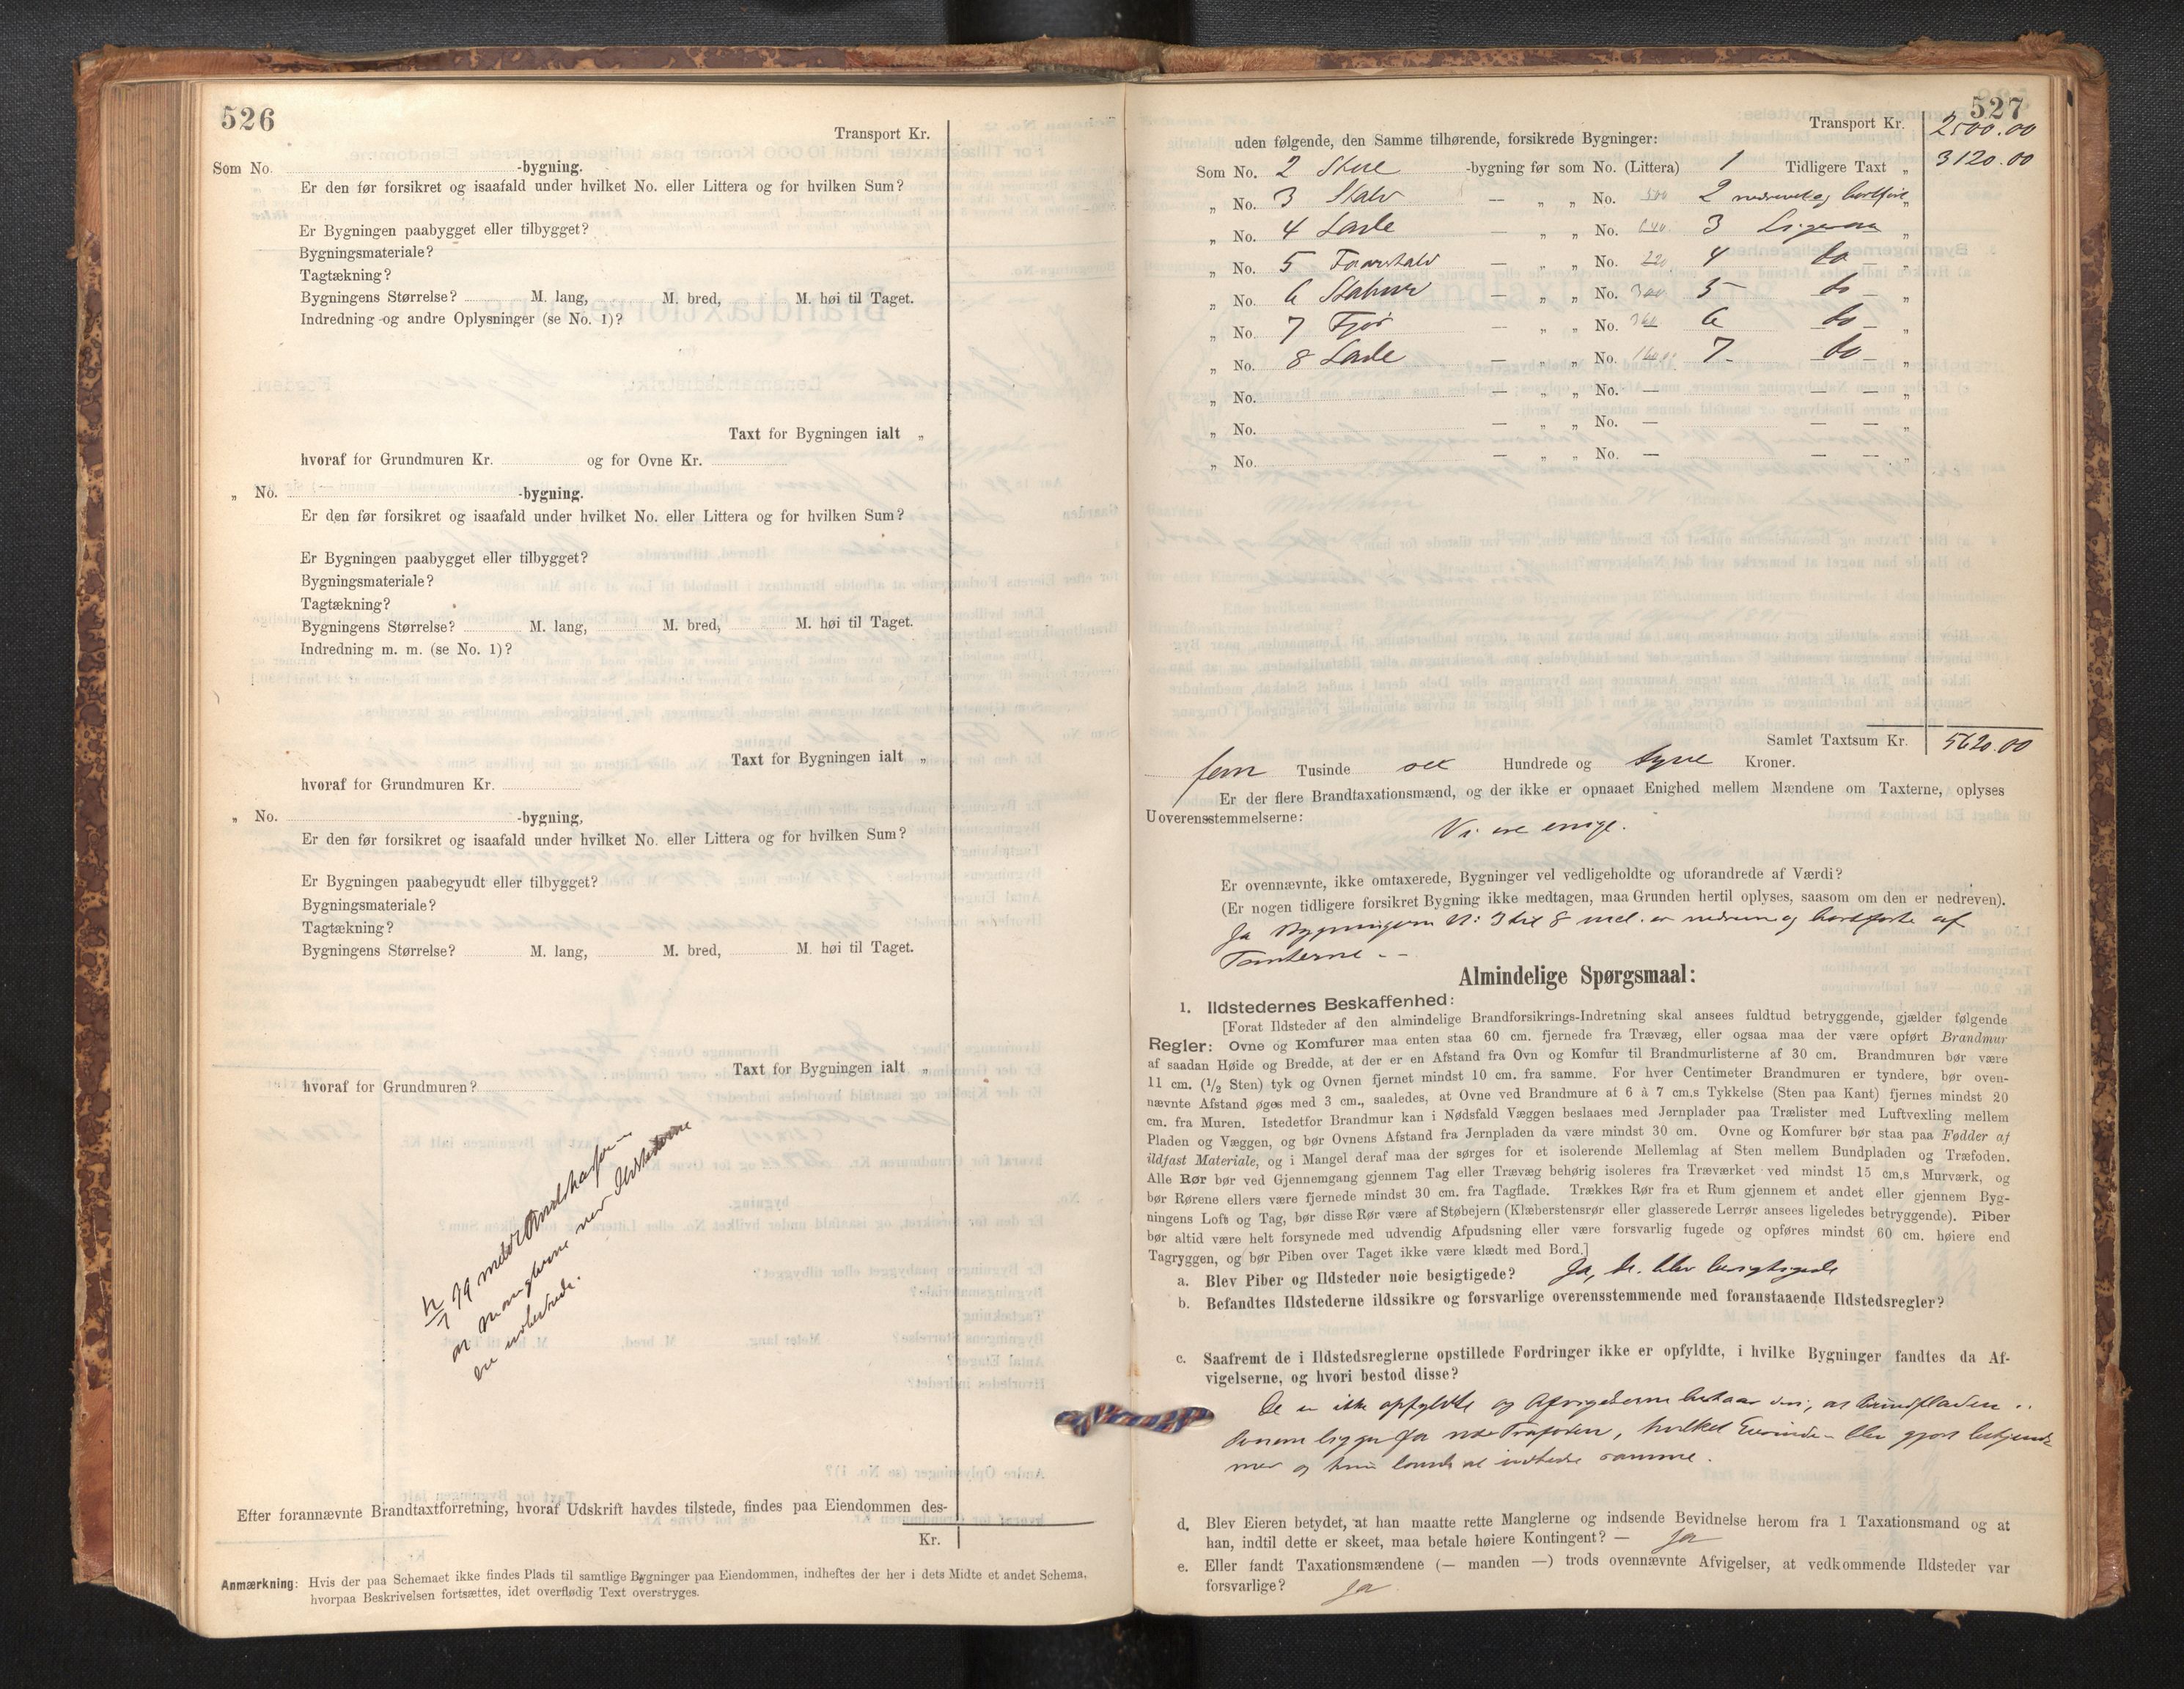 526
Transport Kr.
Som No. -bygning.
Er den før forsikret og isaafald under hvilket No. eller Littera og for hvilken Sum?
Er Bygningen paabygget eller tilbygget?
Bygningsmateriale?
Tagtækning?
Bygningens Størrelse? M. lang, M. bred, M. høi til Taget.
Indredning og andre Oplysninger (se No. 1)?
Taxt for Bygningen ialt „
hvoraf for Grundmuren Kr. og for Ovne Kr.
„ No. -bygning.
Er den før forsikret og isaafald under hvilket No. eller Littera og for hvilken Sum?
Er Bygningen paabygget eller tilbygget?
Bygningsmateriale?
Tagtækning?
Bygningens Størrelse? M. lang, M. bred, M. høi til Taget.
Indredning m. m. (se No. 1)?
Taxt for Bygningen ialt „
hvoraf for Grundmuren Kr.
„ No. -bygning,
Er den før forsikret og isaafald under hvilket No. eller Littera og for hvilken Sum?
Er Bygningen paabegyudt eller tilbygget?
Bygningsmateriale?
Tagtækning?
Bygningens Størrelse? M. lang, M. bred, M. høi til Taget.
Taxt for Bygningen ialt „
hvoraf for Grundmuren?
at manglerne ved Ildstederne
ere udbedrede.
Efter forannævnte Brandtaxtforretning, hvoraf Udskrift havdes tilstede, findes paa Eiendommen des-
Kr.
Anmærkning: Hvis der paa Schemaet ikke findes Plads til samtlige Bygninger paa Eiendommen, indheftes der her i dets Midte et andet Schema,
hvorpaa Beskrivelsen fortsættes, idet overflødig Text overstryges.
527
Transport Kr. 2500.00
uden følgende, den Samme tilhørende, forsikrede Bygninger:
Som No. 2 Stue -bygning før som No. (Littera) 1 Tidligere Taxt „ 3120.00
„ No. 3 Stald — „ „ No. 500 2 nedrevet og bortført „
„ No. 4 Lade — „ „ No. 640 3 Ligesaa „
„ No. 5 Faarestald — „ „ No. 220 4 — do — „
„ No. 6 Stabur — „ „ No. 300 5 — do — „
„ No. 7 Fjøs — „ „ No. 360 6 — do — „
„ No. 8 Lade — „ „ No. 160 7 — do — „
„ No. — „ „ No. — — — „
„ No. — „ „ No. — — — „
„ No. — „ „ No. — — — „
Samlet Taxtsum Kr. 5620.00
fem Tusinde sex Hundrede og tyve Kroner.
Er der flere Brandtaxationsmænd, og der ikke er opnaaet Enighed mellem Mændene om Taxterne, oplyses
Uoverensstemmelserne:
Vi ere enige.
Er ovennævnte, ikke omtaxerede, Bygninger vel vedligeholdte og uforandrede af Værdi?
(Er nogen tidligere forsikret Bygning ikke medtagen, maa Grunden hertil oplyses, saasom om den er nedreven).
Ja Bygningerne N: 3 til 8 incl. er nedrevne og bortførte af
Tomterne. -
Almindelige Spørgsmaal:
1. Ildstedernes Beskaffenhed:
[Forat Ildsteder af den almindelige Brandforsikrings-Indretning skal ansees fuldtud betryggende, gjælder følgende
Regler: Ovne og Komfurer maa enten staa 60 cm. fjernede fra Trævæg, eller ogsaa maa der være opført Brandmur
af saadan Høide og Bredde, at der er en Afstand fra Ovn og Komfur til Brandmurlisterne af 30 cm. Brandmuren bør være
11 cm. (½ Sten) tyk og Ovnen fjernet mindst 10 cm. fra samme. For hver Centimeter Brandmuren er tyndere, bør oven-
nævnte Afstand øges med 3 cm., saaledes, at Ovne ved Brandmure af 6 à 7 cm.s Tykkelse (Sten paa Kant) fjernes mindst 20
cm. fra Muren. Istedetfor Brandmur kan i Nødsfald Væggen beslaaes med Jernplader paa Trælister med Luftvexling mellem
Pladen og Væggen, og bør Ovnens Afstand fra Jernpladen da være mindst 30 cm. Ovne og Komfurer bør staa paa Fødder af
ildfast Materiale, og i Mangel deraf maa der sørges for et isolerende Mellemlag af Sten mellem Bundpladen og Træfoden.
Alle Rør bør ved Gjennemgang gjennem Tag eller Trævæg behørig isoleres fra Træværket ved mindst 15 cm.s Murværk, og
bør Rørene ellers være fjernede mindst 30 cm. fra Tagflade. Trækkes Rør fra et Rum gjennem et andet eller gjennem Byg-
ningens Loft og Tag, bør disse Rør være af Støbejern (Klæberstensrør eller glasserede Lerrør ansees ligeledes betryggende). Piber
bør altid være helt forsynede med udvendig Afpudsning eller være forsvarlig fugede og opføres mindst 60 cm. høiere end
Tagryggen, og bør Piben over Taget ikke være klædt med Bord.]
a. Blev Piber og Ildsteder nøie besigtigede? Ja, de blev besigtigede
b. Befandtes Ildstederne ildssikre og forsvarlige overensstemmende med foranstaaende Ildstedsregler?
c. Saafremt de i Ildstedsreglerne opstillede Fordringer ikke er opfyldte, i hvilke Bygninger fandtes da Af-
vigelserne, og hvori bestod disse?
De er ikke opfyldte og Afvigelserne bestaar deri, at bundpladen
Ovnene ligger paa Træfoden, hvilket Eierinden blev gjort bekjendt
med og hun lovede at udbedre samme.
d. Blev Eieren betydet, at han maatte rette Manglerne og indsende Bevidnelse herom fra 1 Taxationsmand og at
han, indtil dette er skeet, maa betale høiere Kontingent? — Ja
e. Eller fandt Taxationsmændene (— manden —) trods ovennævnte Afvigelser, at vedkommende Ildsteder var
forsvarlige? Ja